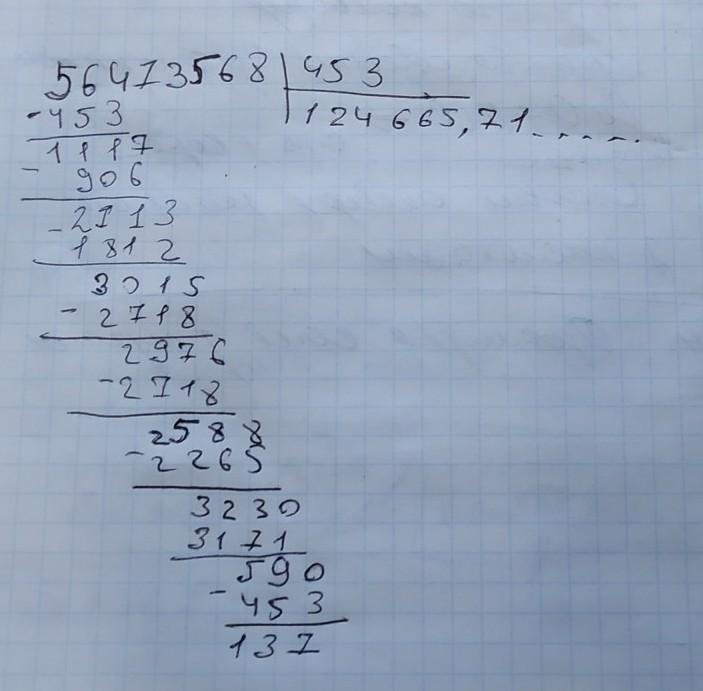 56473568 | 453
-453 124665,71......
1117
- 906
-2113
1812
3015
- 2718
2976
-2718
2588
-2265
3230
3171
590
- 453
137